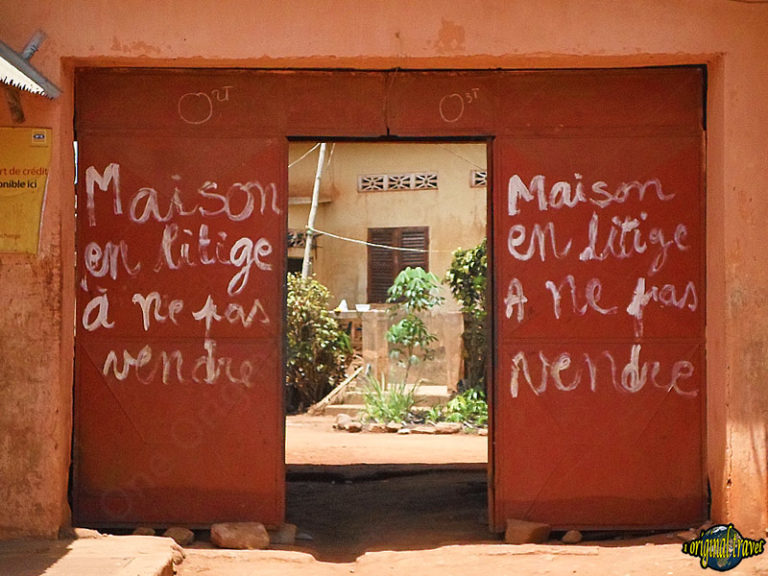 Maison
en litige
à ne pas
vendre
Maison
en litige
A ne pas
vendre
rt de crédit
onible ici
original travel